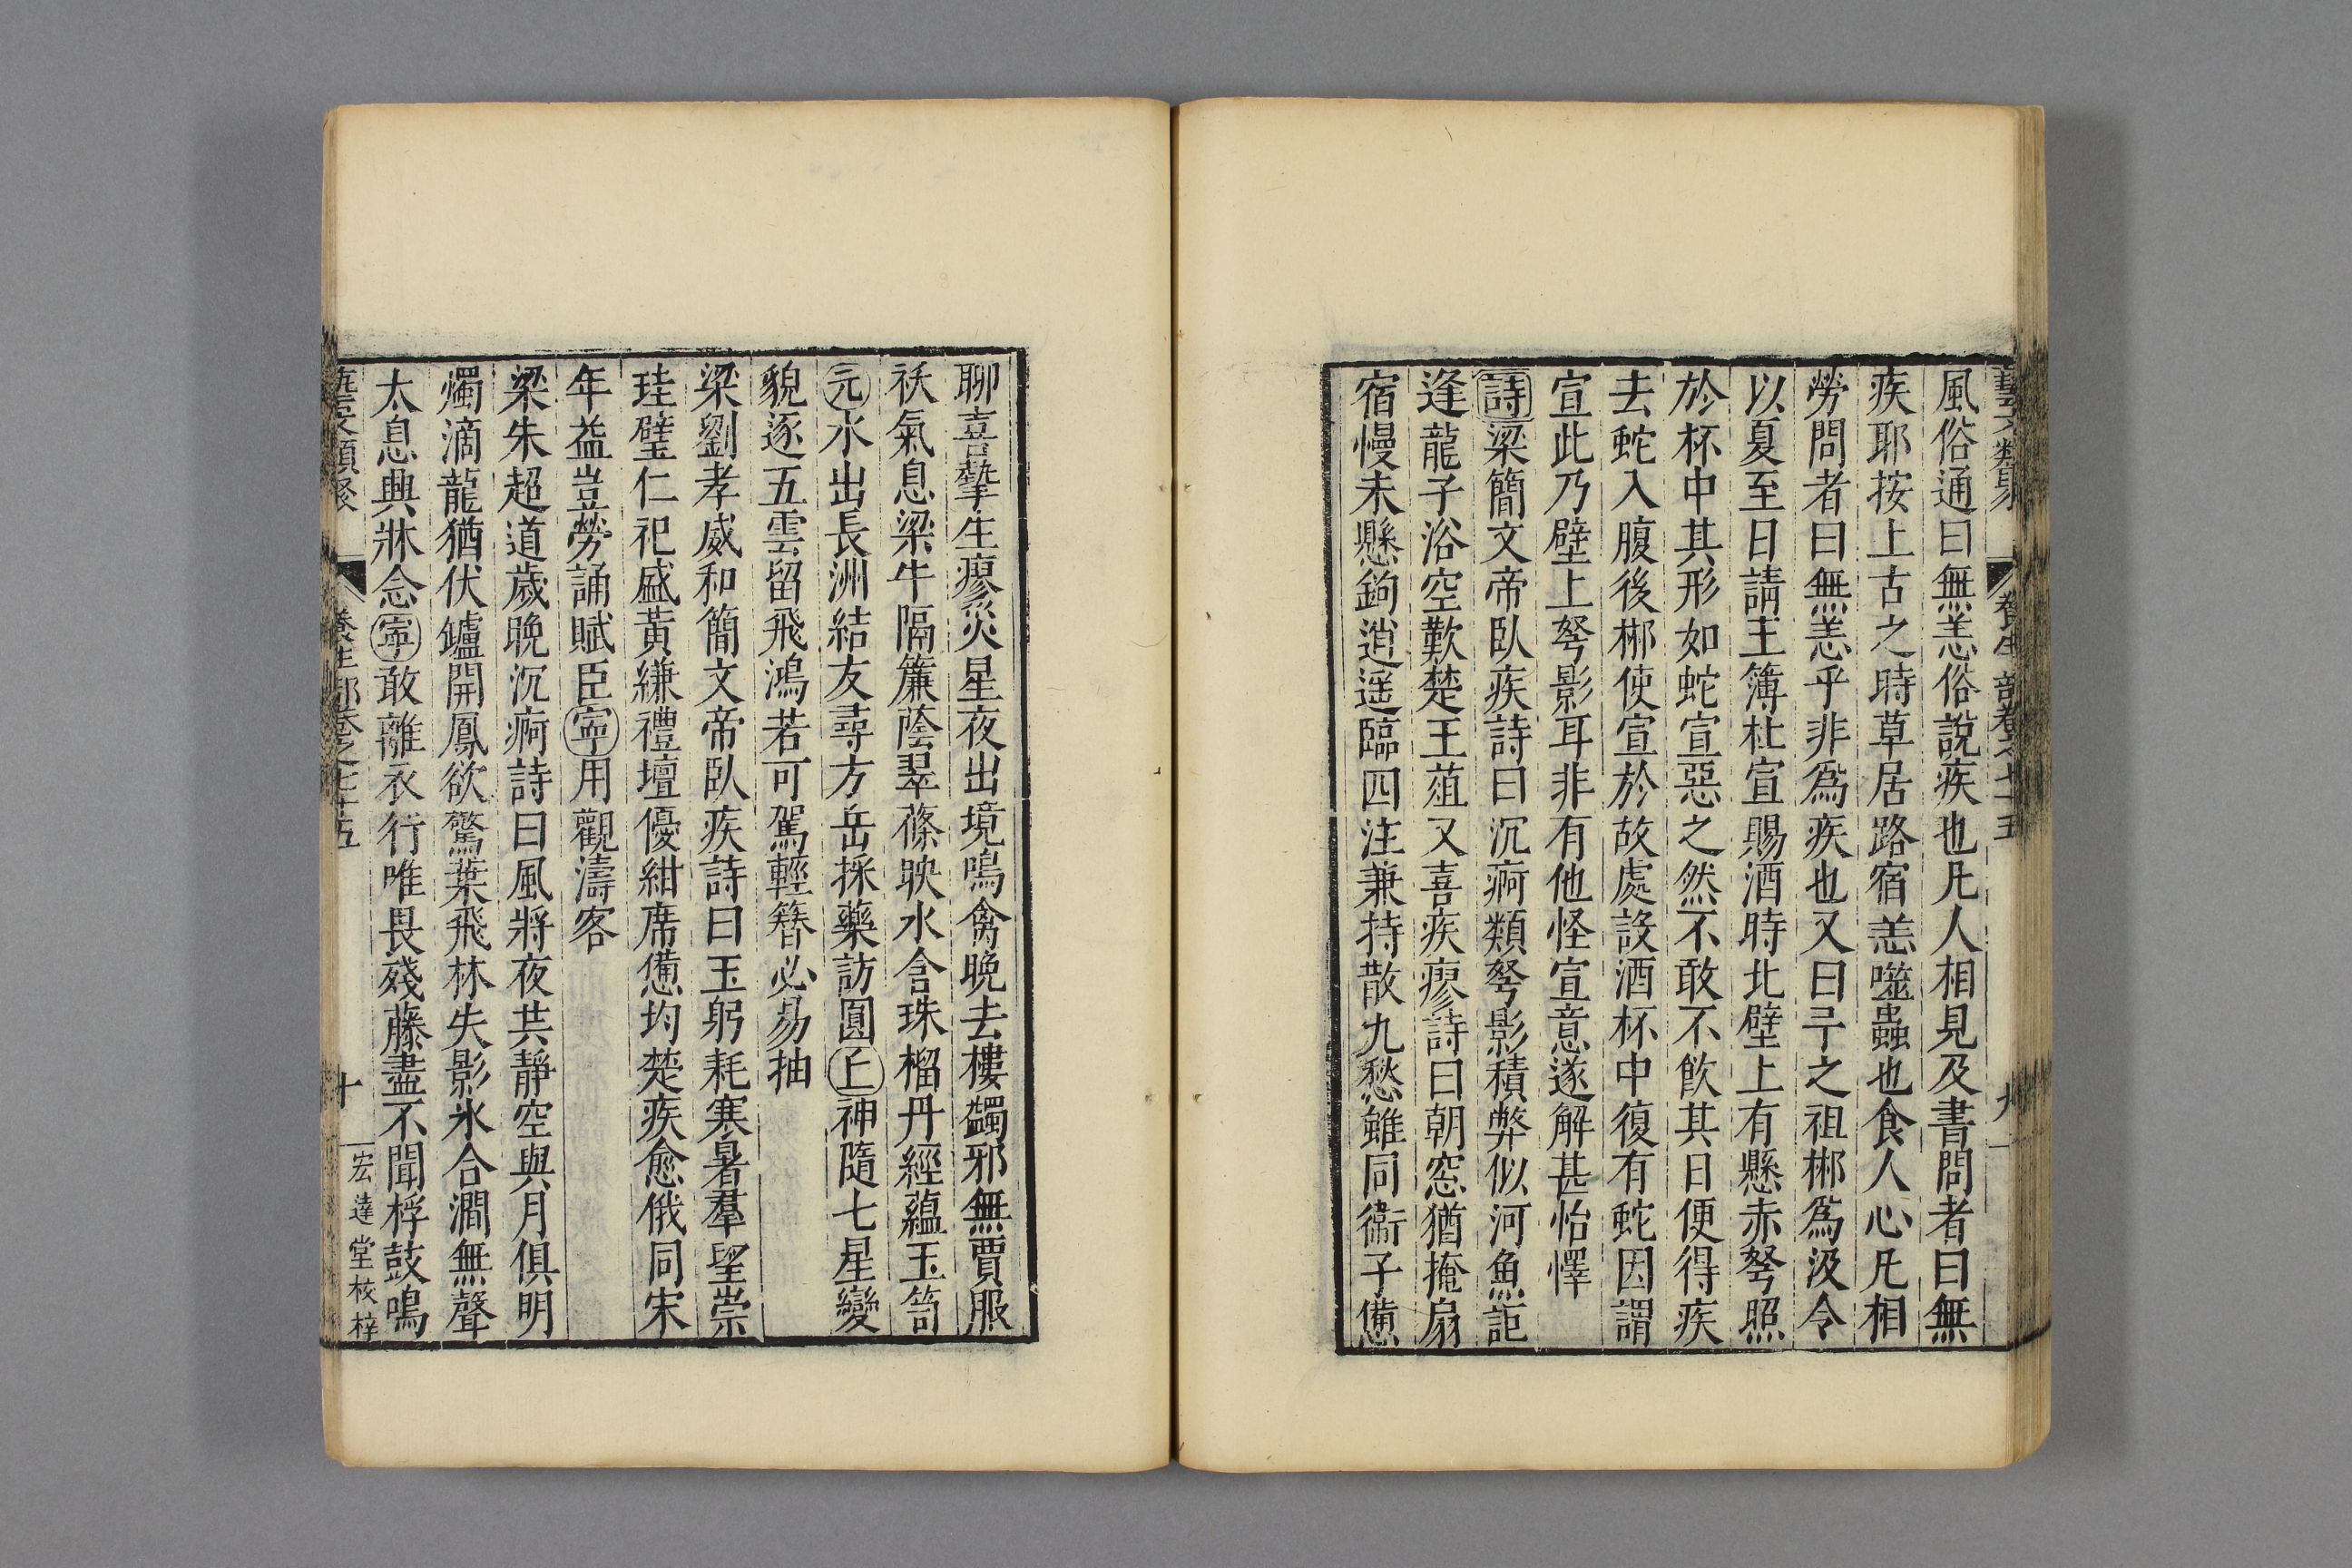 藝文類聚 養生部卷之七十五 九
風俗通曰無恙俗說疾也凡人相見及書問者曰無
疾耶按上古之時草居路宿恙噬蟲也食人心凡相
勞問者曰無恙乎非爲疾也又曰予之祖郴爲汲令
以夏至日請主簿杜宣賜酒時北壁上有懸赤弩照
於杯中其形如蛇宣惡之然不敢不飲其日便得疾
去蛇入腹後郴使宣於故處設酒杯中復有蛇因謂
宣此乃壁上弩影耳非有他怪宣意遂解甚怡懌
詩梁簡文帝臥疾詩曰沉痾類弩影積弊似河魚詎
逢龍子浴空歎楚王葅又喜疾瘳詩曰朝窓猶掩扇
宿慢未懸鉤逍遥臨四注兼持散九愁雖同衞子憊
聊喜摯生瘳災星夜出境鳴禽晚去樓蠲邪無賈服
祅氣息梁牛隔簾蔭翠篠映水含珠榴丹經蘊玉笥
元水出長洲結友尋方岳採藥訪圓上神隨七星變
貌逐五雲留飛鴻若可駕輕簪必易抽
梁劉孝威和簡文帝臥疾詩曰玉躬耗寒暑羣望崇
珪璧仁祀盛黃縑禮壇優紺席憊均楚疾愈俄同宋
年益豈勞誦賦臣寧用觀濤客
梁朱超道歲晚沉痾詩曰風將夜共靜空與月俱明
燭滴龍猶伏鑪開鳳欲驚葉飛林失影氷合澗無聲
太息興牀念寧敢離衣行唯畏殘藤盡不聞桴鼓鳴
藝文類聚 養生部卷之七十五 十 宏達堂校梓